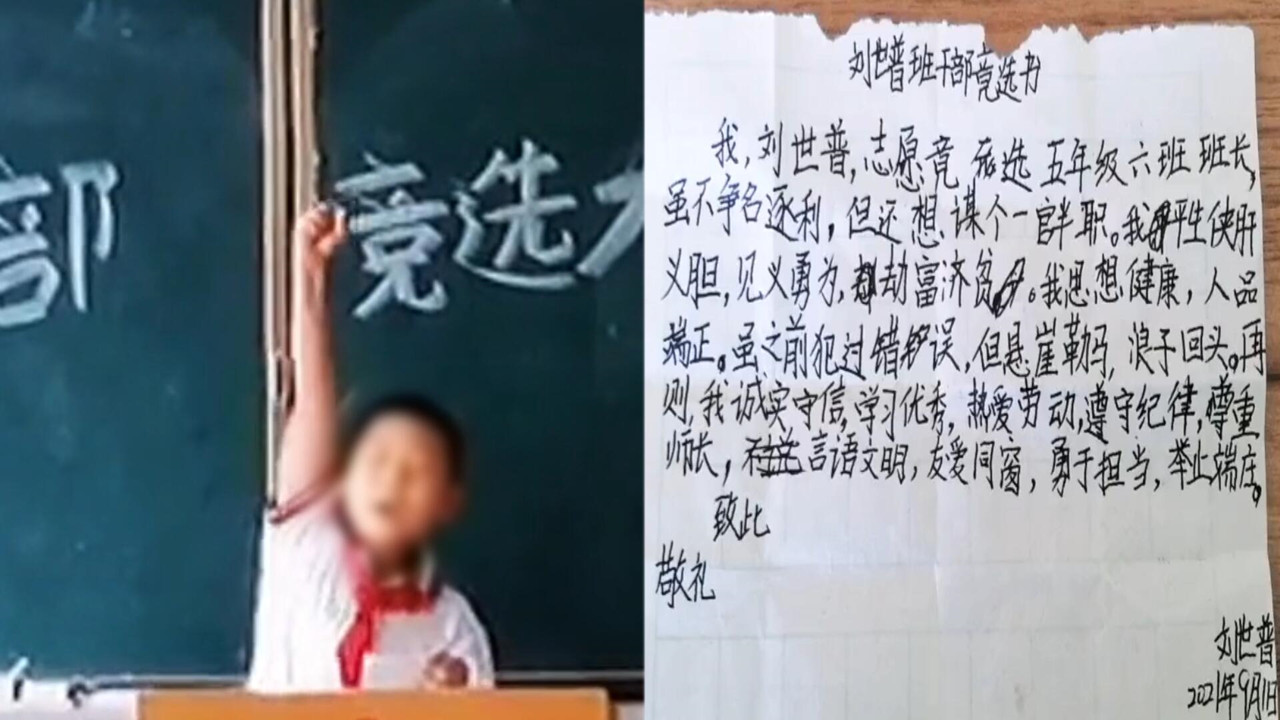 部 竞选
刘世普班干部竞选书
我,刘世普,志愿竞选五年级六班班长,
虽不争名逐利,但还想谋个一官半职。我平生侠肝
义胆,见义勇为,劫富济贫。我思想健康,人品
端正。虽之前犯过错误,但悬崖勒马,浪子回头。再
则,我诚实守信,学习优秀,热爱劳动,遵守纪律,尊重
师长,言语文明,友爱同窗,勇于担当,举止端庄。
致此
敬礼
刘世普
2021年9月1日